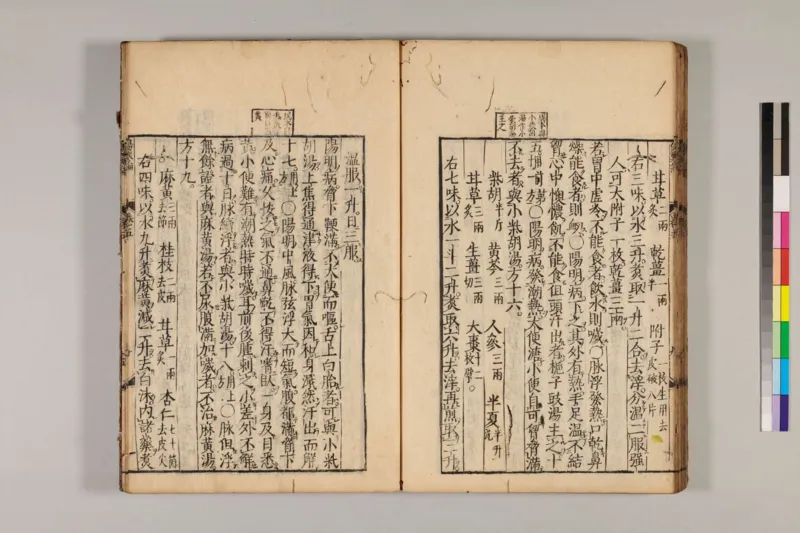 甘草二兩炙 乾薑一兩半 附子一枚生用去皮破八片
右三味以水三升煮取一升二合去滓分溫二服強
人可大附子一枚乾薑三兩
若胃中虛冷不能食者飲水則噦○脉浮發熱口乾鼻
燥能食者則衄○陽明病下之其外有熱手足溫不結
胷心中懊憹飢不能食但頭汗出者梔子豉湯主之十
五用前第七方○陽明病發潮熱大便溏小便自可胷脅滿
不去者與小柴胡湯方十六
柴胡半斤 黃芩三兩 人參三兩 半夏半升洗
甘草三兩炙 生薑三兩切 大棗十二枚擘
右七味以水一斗二升煮取六升去滓再煎取三升
溫服一升日三服
陽明病脅下鞕滿不大便而嘔舌上白胎者可與小柴
胡湯上焦得通津液得下胃氣因和身濈然汗出而解
十七用上方○陽明中風脉弦浮大而短氣腹都滿脅下
及心痛久按之氣不通鼻乾不得汗嗜臥一身及目悉
黃小便難有潮熱時時噦耳前後腫刺之小差外不解
病過十日脉續浮者與小柴胡湯十八用上方○脉但浮
無餘證者與麻黃湯若不尿腹滿加噦者不治麻黃湯
方十九
麻黃三兩去節 桂枝二兩去皮 甘草一兩炙 杏仁七十箇去皮尖
右四味以水九升煮麻黃減二升去白沫內諸藥煮